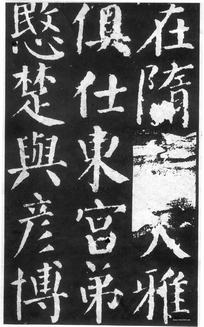 在隋大雅
俱仕東宮弟
愍楚與彥博